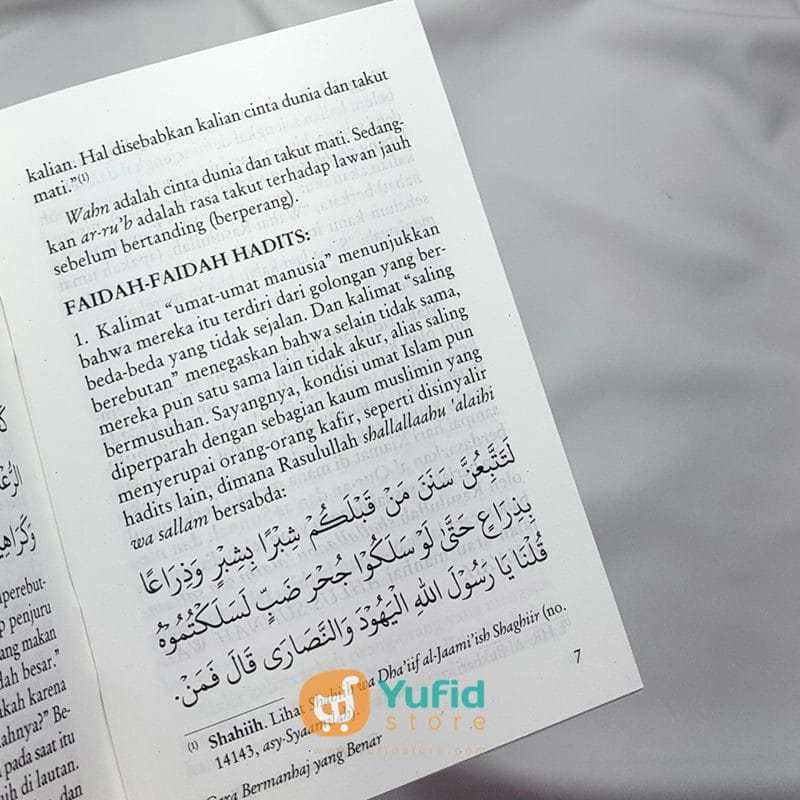 كَ
الرُّعْ
وَكَرَاهِيَ
perebut-
p penjuru
ang makan
dah besar."
akah karena
ahnya?" Be-
pada saat itu
ih di lautan.
dan
kalian. Hal disebabkan kalian cinta dunia dan takut
mati."(1)
Wahn adalah cinta dunia dan takut mati. Sedang-
kan ar-ru'b adalah rasa takut terhadap lawan jauh
sebelum bertanding (berperang).
FAIDAH-FAIDAH HADITS:
1. Kalimat "umat-umat manusia" menunjukkan
bahwa mereka itu terdiri dari golongan yang ber-
beda-beda yang tidak sejalan. Dan kalimat "saling
berebutan" menegaskan bahwa selain tidak sama,
mereka pun satu sama lain tidak akur, alias saling
bermusuhan. Sayangnya, kondisi umat Islam pun
diperparah dengan sebagian kaum muslimin yang
menyerupai orang-orang kafir, seperti disinyalir
hadits lain, dimana Rasulullah shallallaahu 'alaihi
wa sallam bersabda:
لَتَتَّبِعُنَّ سَنَنَ مَنْ قَبْلَكُمْ شِبْرًا بِشِبْرٍ وَذِرَاعًا
بِذِرَاعٍ حَتَّى لَوْ سَلَكُوْا جُحْرَ ضَبٍّ لَسَلَكْتُمُوْهُ
قُلْنَا يَا رَسُوْلَ اللهِ الْيَهُوْدَ وَالنَّصَارَى قَالَ فَمَنْ.
(1) Shahiih. Lihat Shahiih wa Dha'iif al-Jaami'ish Shaghiir (no.
14143, asy-Syaamilah).
7
Cara Bermanhaj yang Benar
Yufid
store
www.yufidstore.com